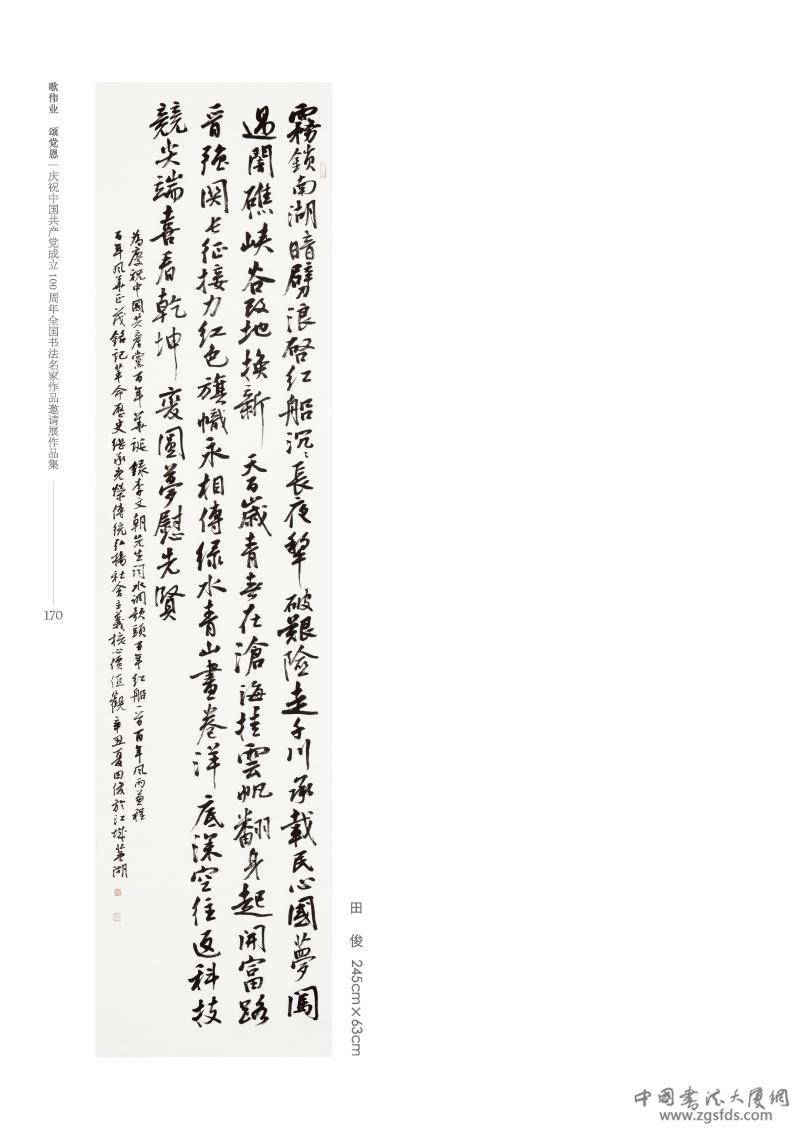 霧鎖南湖暗劈浪啓紅船沉〻長夜犂破艱險走千川承載民心國夢闖
過闇礁峽谷改地換新天百歲青春在滄海掛雲帆翻身起開富路
晉強関長征接力紅色旗幟永相傳綠水青山畫卷洋底深空往返科技
競尖端喜看乾坤變圓夢慰先賢
為慶祝中國共產黨百年華誕錄李文朝先生詞水調歌頭百年紅船一首百年風雨兼程
百年風華正茂銘記革命歷史繼承光榮傳統弘揚社會主義核心價值觀辛丑夏田俊於江城蕪湖
歌伟业 颂党恩 | 庆祝中国共产党成立100周年全国书法名家作品邀请展作品集
170
田 俊 245cm×63cm
中國書法大厦網
www.zgsfds.com